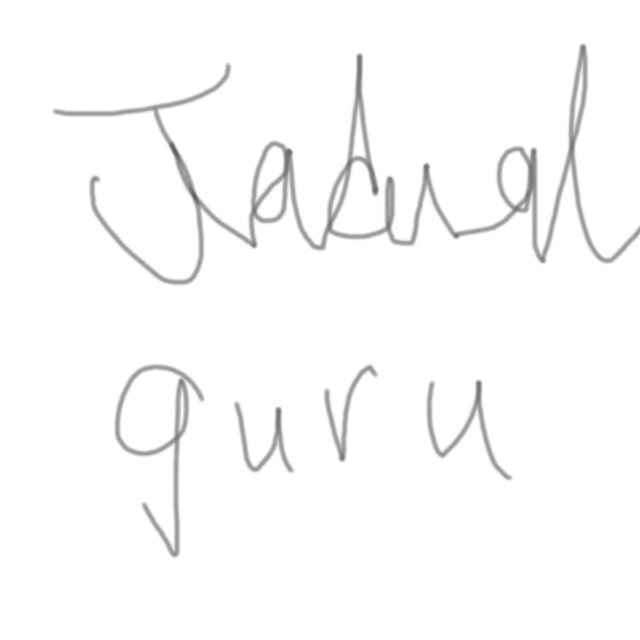 Jadual
guru